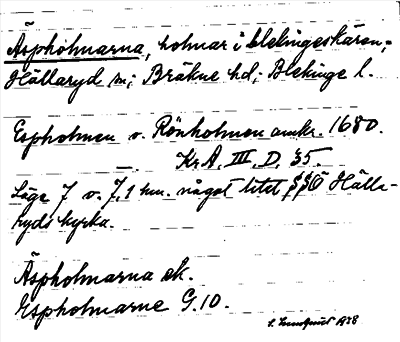 Äspholmarna, holmar i blekingeskären;
Hällaryd sn; Bräkne hd; Blekinge l.
Espholmen v. Rönholmen omkr. 1680.
KrA. III. D. 35.
Läge 7 v. 7,1 km. något litet SSÖ Hälla-
ryds kyrka.
Äspholmarna ek.
Espholmarne G.10.
1938